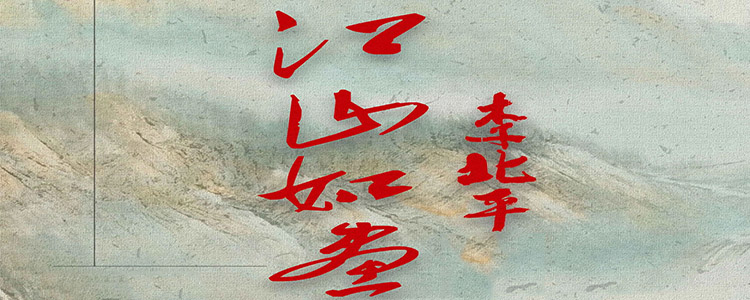 江山如画
李北平